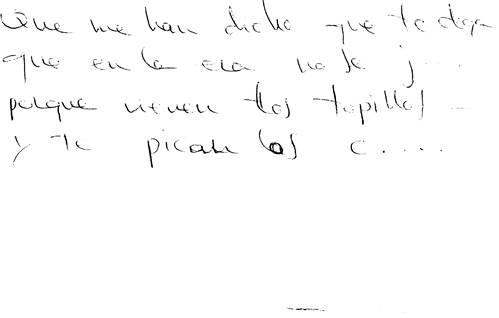 Que me han dicho que te diga
que en la era no se j....
porque vienen los topillos
y te pican los c.....